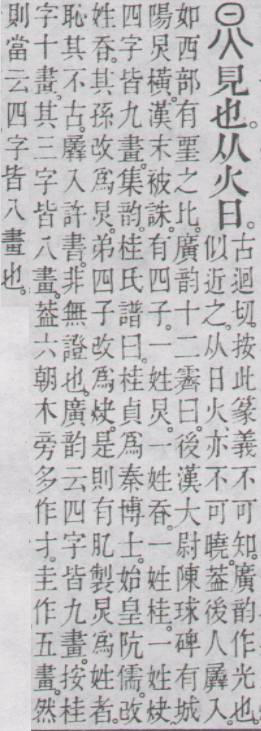 見也。从火日。古迴切。按此篆義不可知。廣韵作光也。
似近之。从日火、亦不可曉。葢後人羼入。
如西部有之比。廣韵十二霽曰。後漢大尉陳球碑有城
陽炅橫。漢末被誅。有四子。一姓炅。一姓吞。一姓桂。一姓炔。
四字皆九畫。集韵。桂氏譜曰。桂貞爲秦博士。始皇阬儒。改
姓吞。其孫改爲炅。弟四子改爲炔。是則有肊製炅爲姓者。
恥其不古。羼入許書。非無證也。廣韵云四字皆九畫。按桂
字十畫。其三字皆八畫。葢六朝木旁多作才。圭作五畫。然
則當云四字皆八畫也。